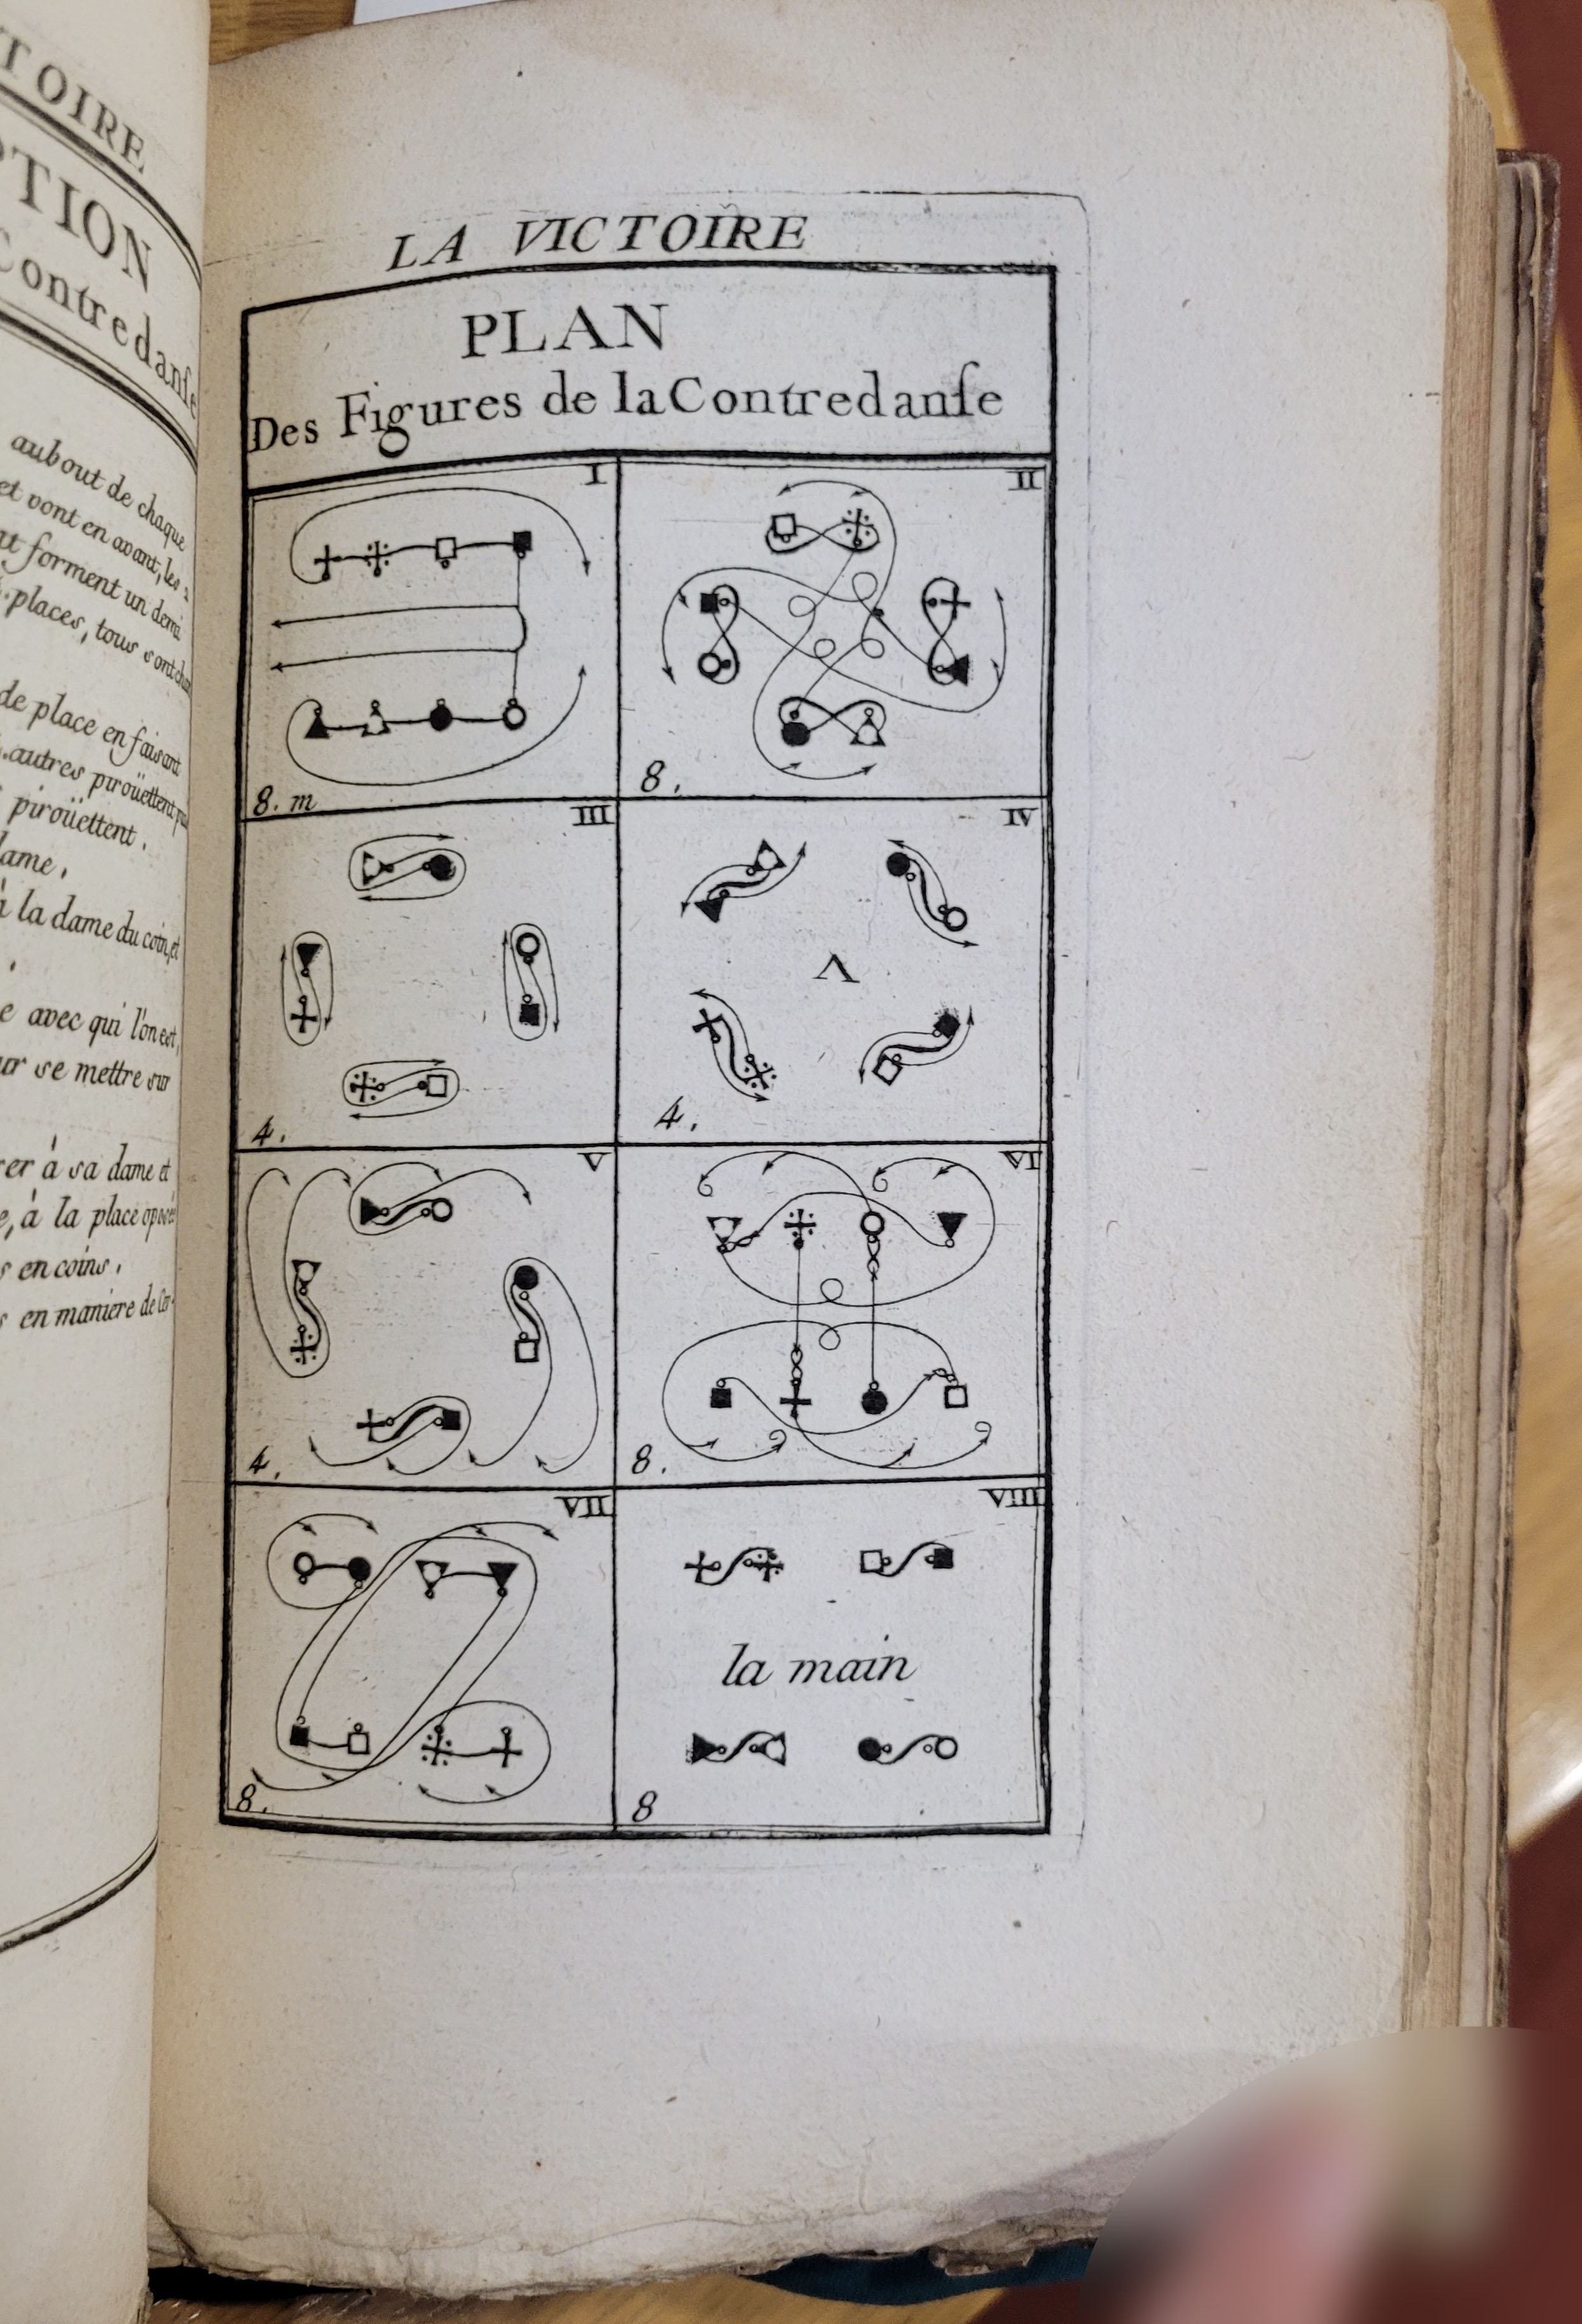 TOIRE
TION
Contredanſe
aubout de chaque
et vont en avant, les 2
forment un demi
places, tous sont
de place en faisant
autres piroüettent
piroüettent.
dame.
à la dame du coin, et
e avec qui l'on est,
ur se mettre sur
rer à sa dame et
e, à la place oposée
s en coins.
s en maniere de
LA VICTOIRE
PLAN
Des Figures de la Contredanſe
I
8. m
II
8.
III
4.
IV
V
4.
V
4.
VI
8.
VII
8.
VIII
la main
8